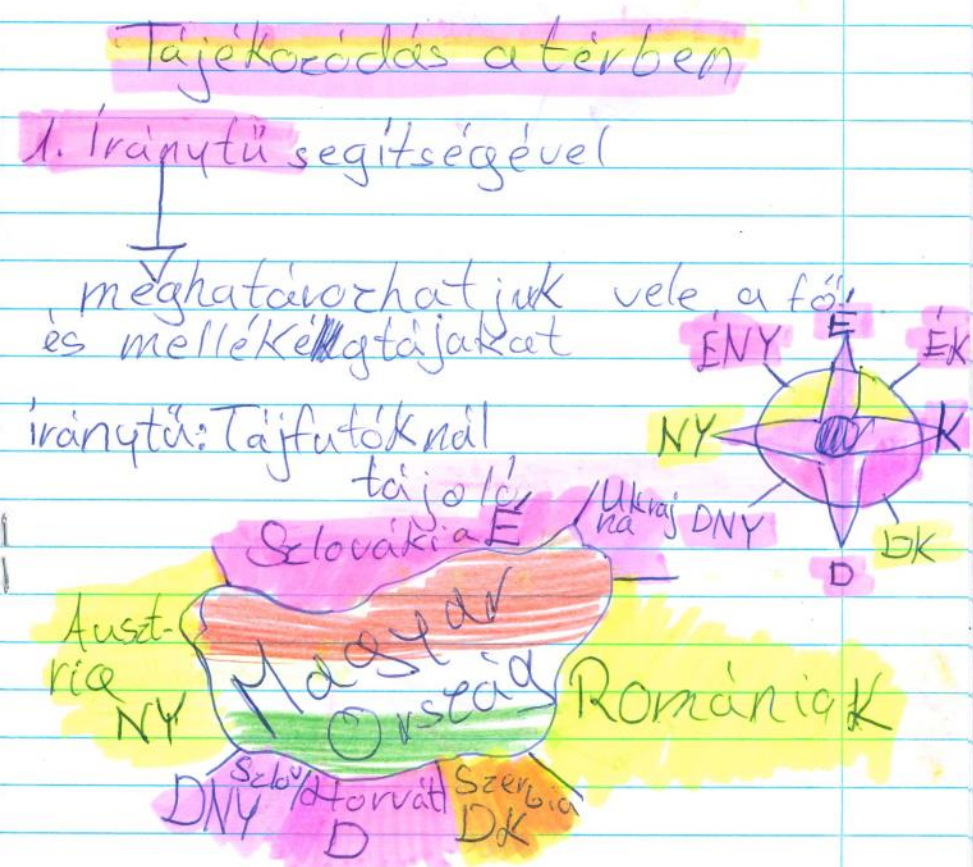 Tájékozódás a térben
1. Iránytű segítségével
meghatározhatjuk vele a fő
és mellékégtájakat
iránytű: Tájfutóknál
tájoló
É
ÉNY
ÉK
NY
K
DNY
DK
D
Szlovákia É
Ukraj
na
Auszt-
ria
NY
Magyar
Ország
Románia K
Szlov
DNY
Horvát
D
Szerbia
DK